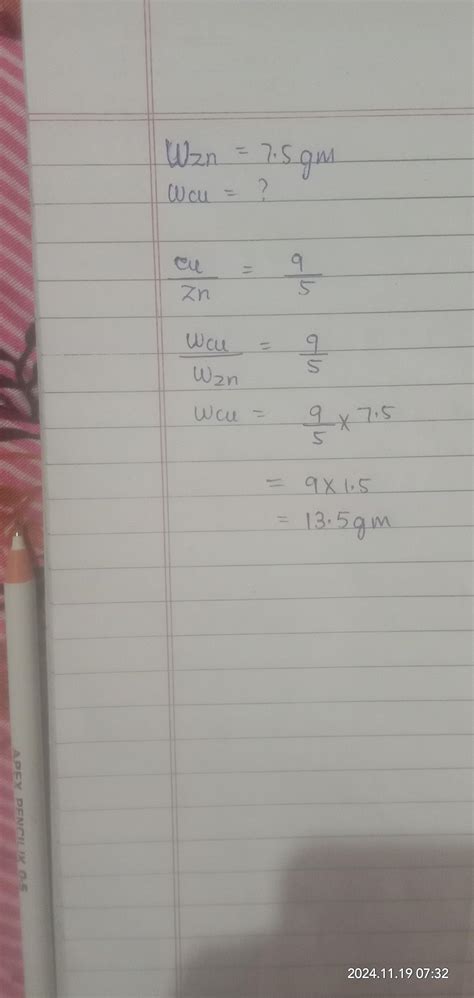 Wzn = 7.5gm
Wcu = ?
cu/zn = 9/5
Wcu/Wzn = 9/5
Wcu = 9/5 x 7.5
= 9x1.5
= 13.5gm
APEX PENCIL IX 0.5
2024.11.19 07:32